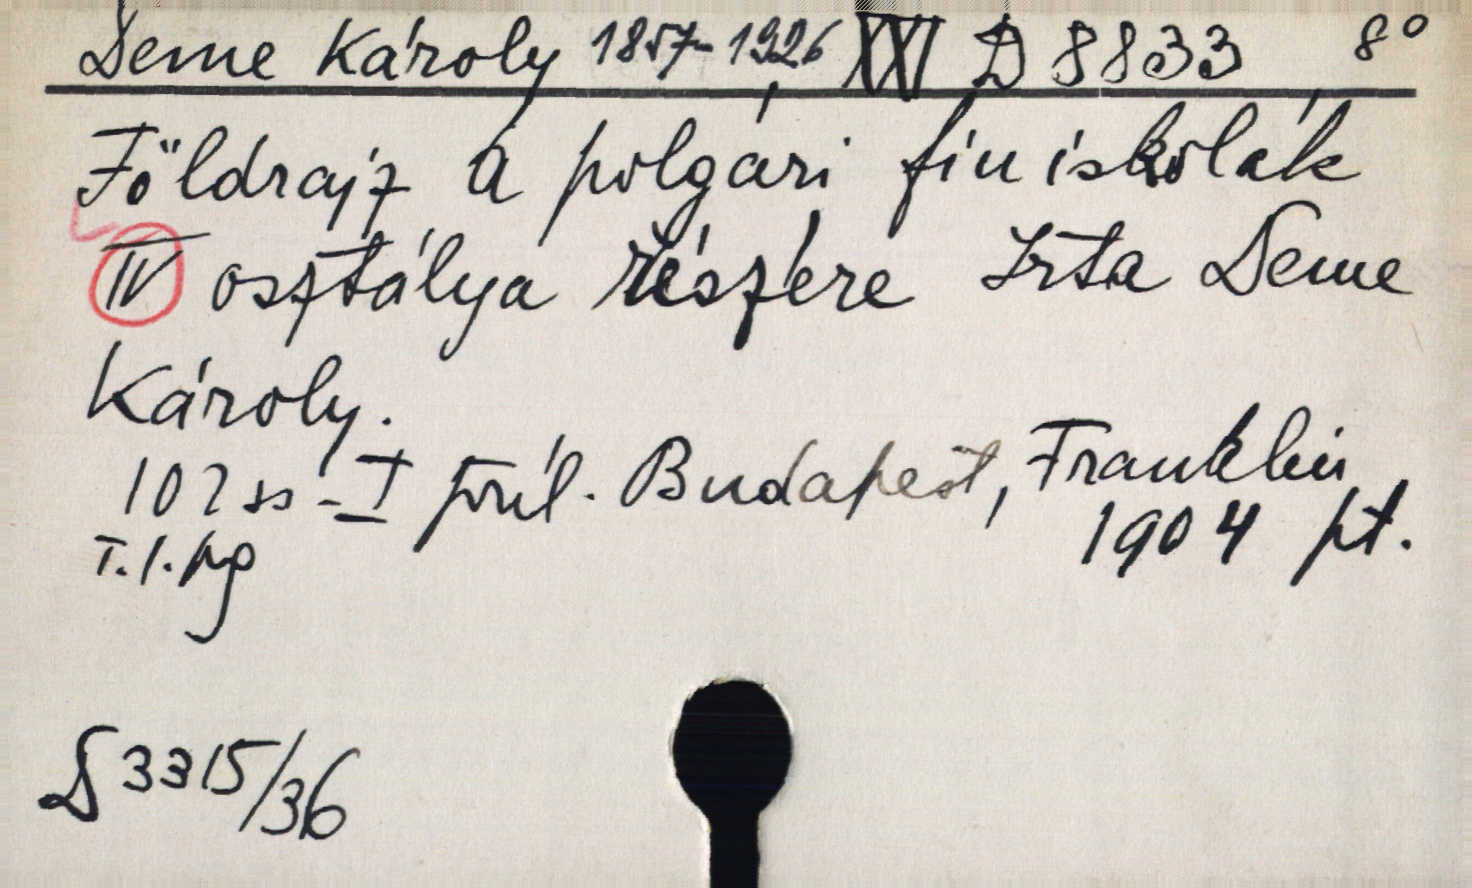 Deme Károly 1857-1926 XXI D 8833 8°
Földrajz a polgári fiu iskolák
IV osztálya részére Irta Deme
Károly.
102 ss - I príl. Budapest, Franklin
1904 pt.
T.l.pg
D 3315/36